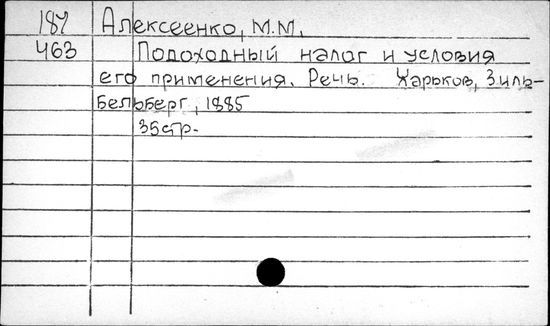 187 Алексеенко, М.М.
463 Подоходный налог и условия
его применения. Речь. Харьков, Зиль-
бельберг, 1885
35стр.